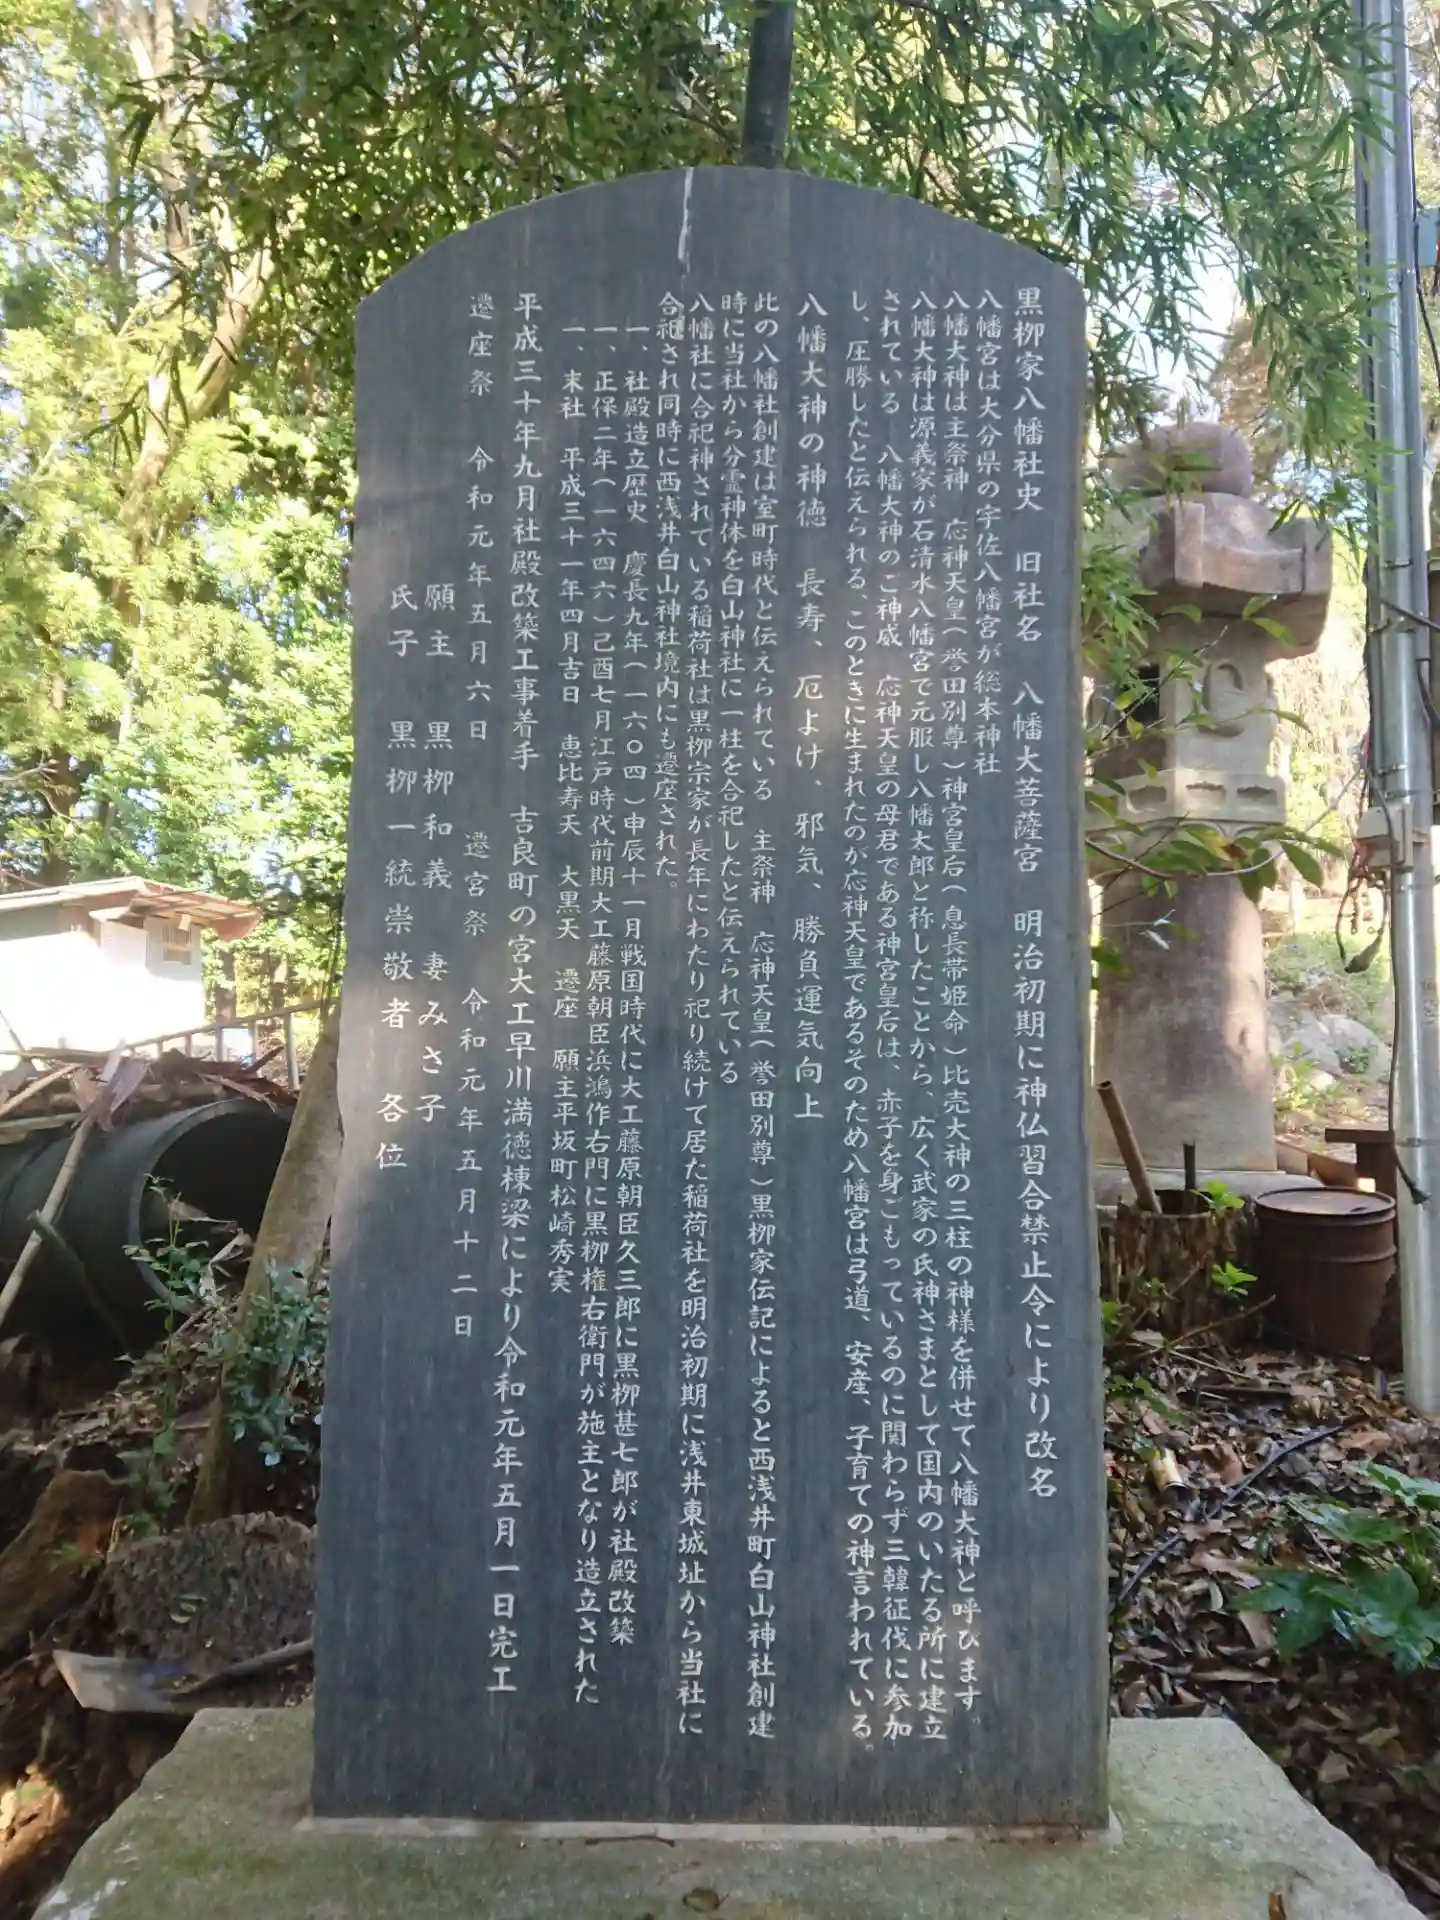 黒栁家八幡社史　旧社名　八幡大菩薩宮　明治初期に神仏習合禁止令により改名
八幡宮は大分県の宇佐八幡宮が総本神社
八幡大神は主祭神　応神天皇(誉田別尊)神宮皇后(息長帯姫命)比売大神の三柱の神様を併せて八幡大神と呼びます。
八幡大神は源義家が石清水八幡宮で元服し八幡太郎と称したことから、広く武家の氏神さまとして国内のいたる所に建立
されている　八幡大神のご神威　応神天皇の母君である神宮皇后は、赤子を身ごもっているのに関わらず三韓征伐に参加
し、圧勝したと伝えられる、このときに生まれたのが応神天皇であるそのため八幡宮は弓道、安産、子育ての神言われている。
八幡大神の神徳　長寿、厄よけ、邪気、勝負運気向上
此の八幡社創建は室町時代と伝えられている　主祭神　応神天皇(誉田別尊)黒栁家伝記によると西浅井町白山神社創建
時に当社から分霊神体を白山神社に一柱を合祀したと伝えられている
八幡社に合祀神されている稲荷社は黒栁宗家が長年にわたり祀り続けて居た稲荷社を明治初期に浅井東城址から当社に
合祀され同時に西浅井白山神社境内にも遷座された。
一、社殿造立歴史　慶長九年(一六〇四)申辰十一月戦国時代に大工藤原朝臣久三郎に黒栁甚七郎が社殿改築
一、正保二年(一六四六)己酉七月江戸時代前期大工藤原朝臣浜鴻作右門に黒栁権右衛門が施主となり造立された
一、末社　平成三十一年四月吉日　恵比寿天　大黒天　遷座　願主平坂町松崎秀実
平成三十年九月社殿改築工事着手　吉良町の宮大工早川満徳棟梁により令和元年五月一日完工
遷座祭　令和元年五月六日　遷宮祭　令和元年五月十二日
願主　黒栁和義　妻みさ子
氏子　黒栁一統崇敬者　各位